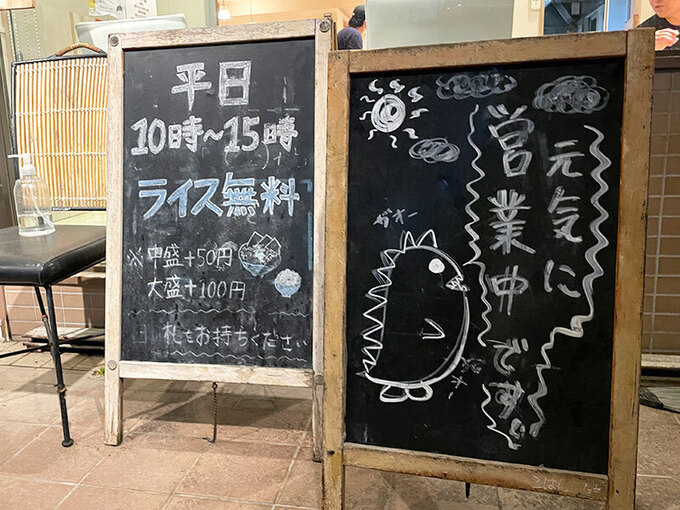 平日
10時~15時
ライス無料
※中盛+50円
大盛+100円
札をお持ちください
元気に
営業中です。
ガオー